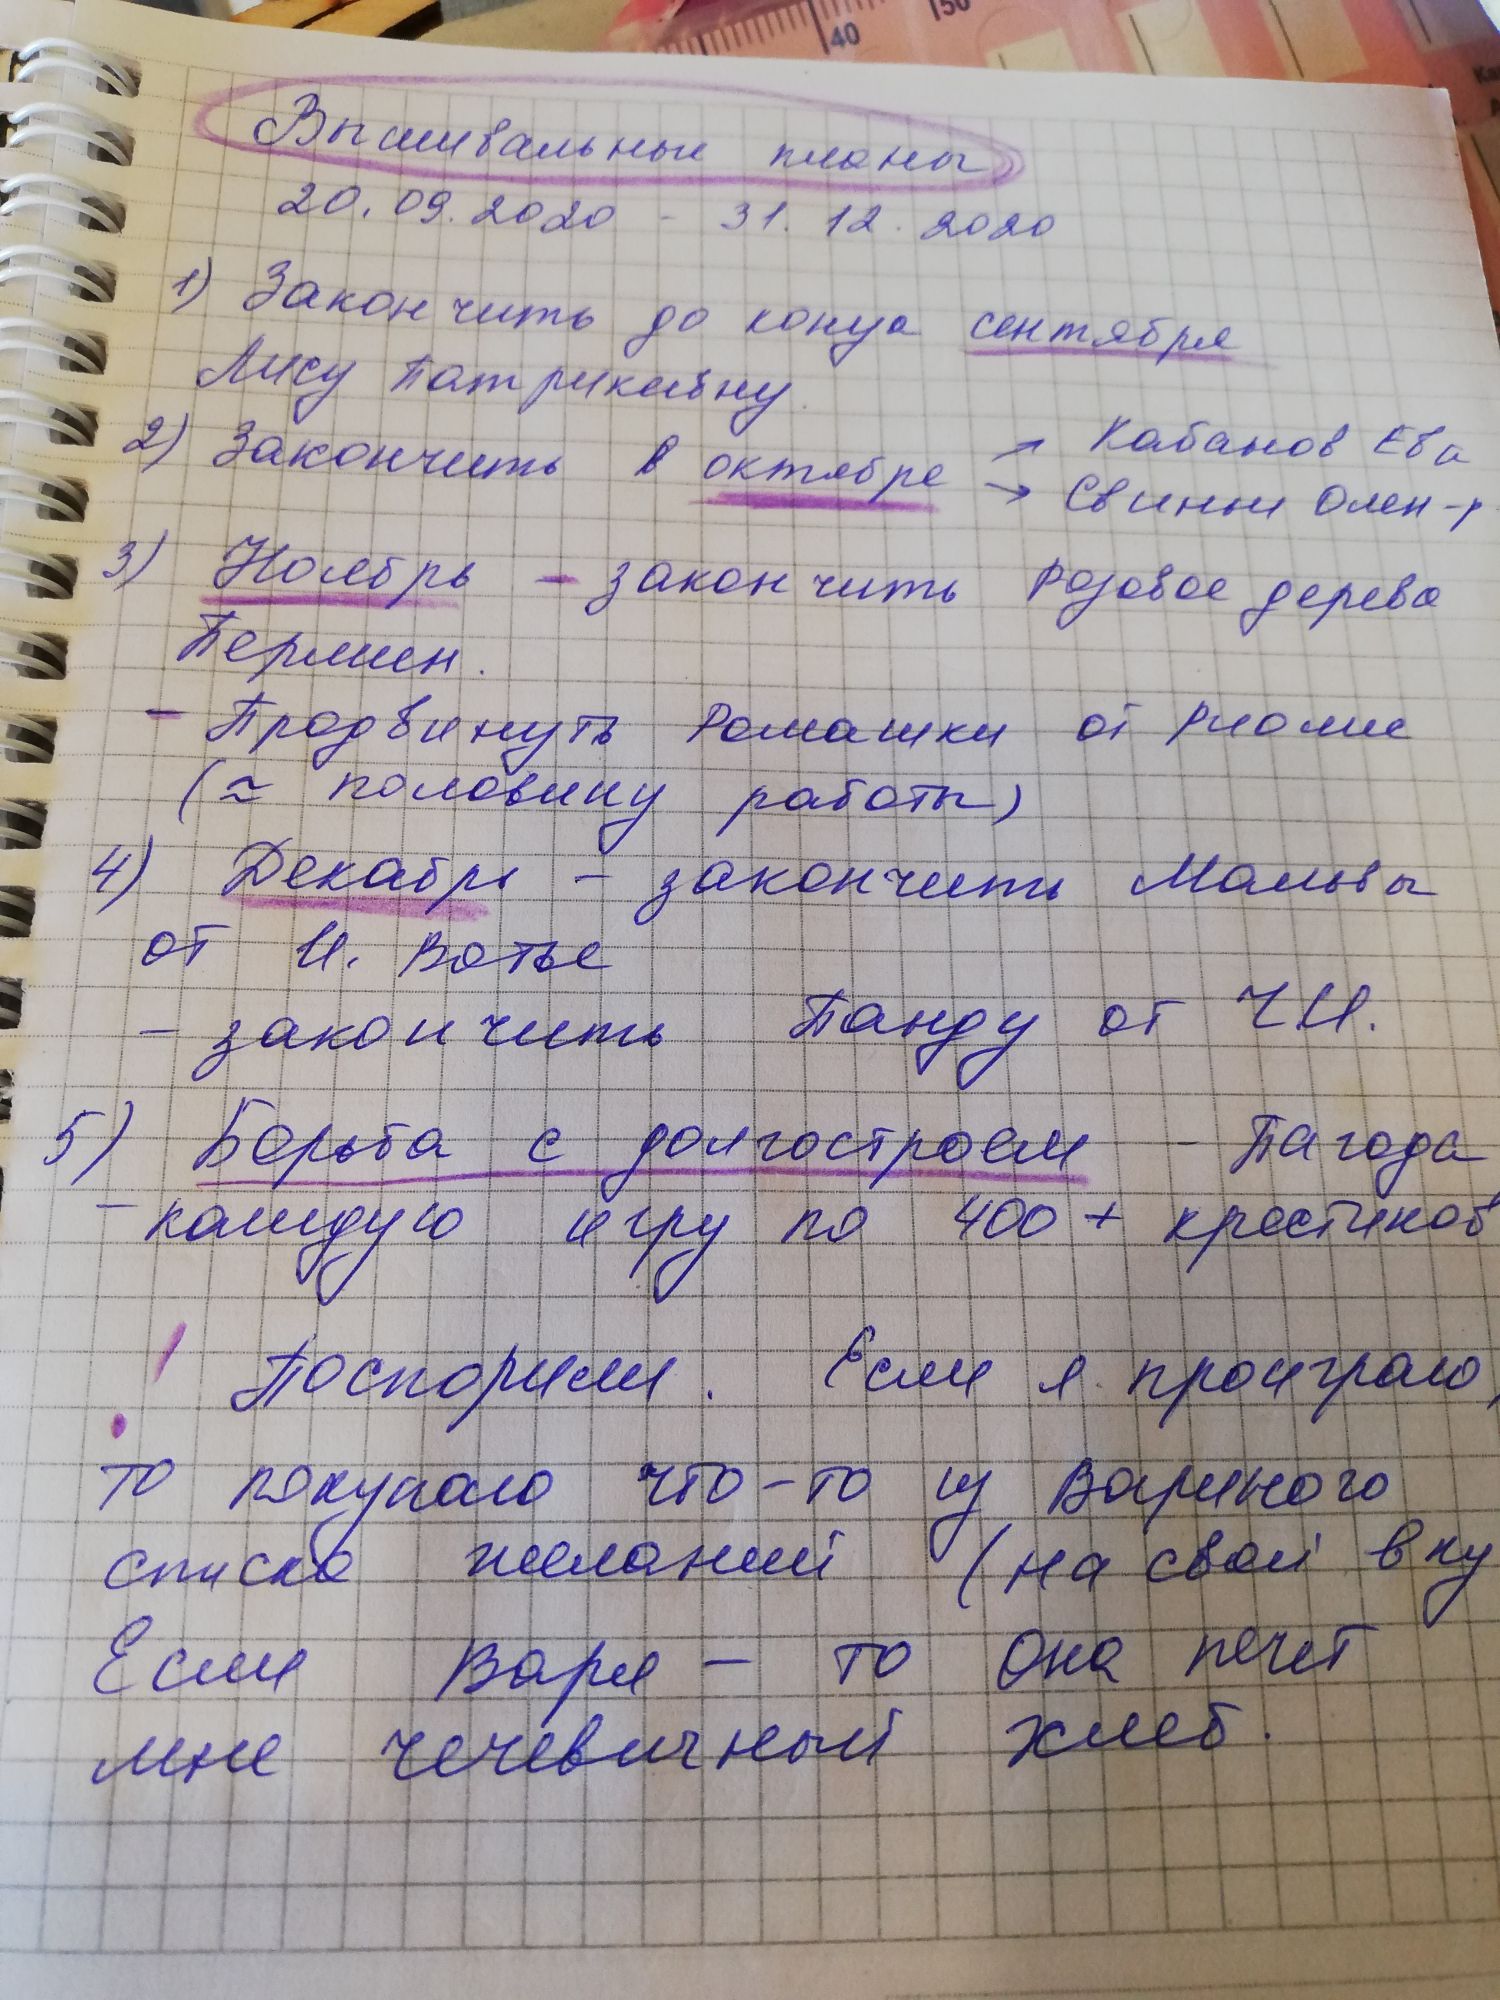 40
50
Вышивальные планы
20.09.2020 - 31.12.2020
1) Закончить до конца сентября
Лису Патрикевну.
2) Закончить в октябре → Кабанов Ева
→ Свиньи Олен-р
3) Ноябрь - закончить Розовое дерево
Пермин.
- Продвинуть Ромашки от Риолис
(≈ половину работы)
4) Декабрь - закончить Мальвы
от И. Ватье
- закончить Панду от ЧИ.
5) Борьба с долгостроем - Пагода
- каждую игру по 400 + крестиков
! Поспорили. Если я проиграю,
то покупаю что-то из Вариного
списка желаний (на свой вку
Если Варя - то она печет
мне чечевичный хлеб.